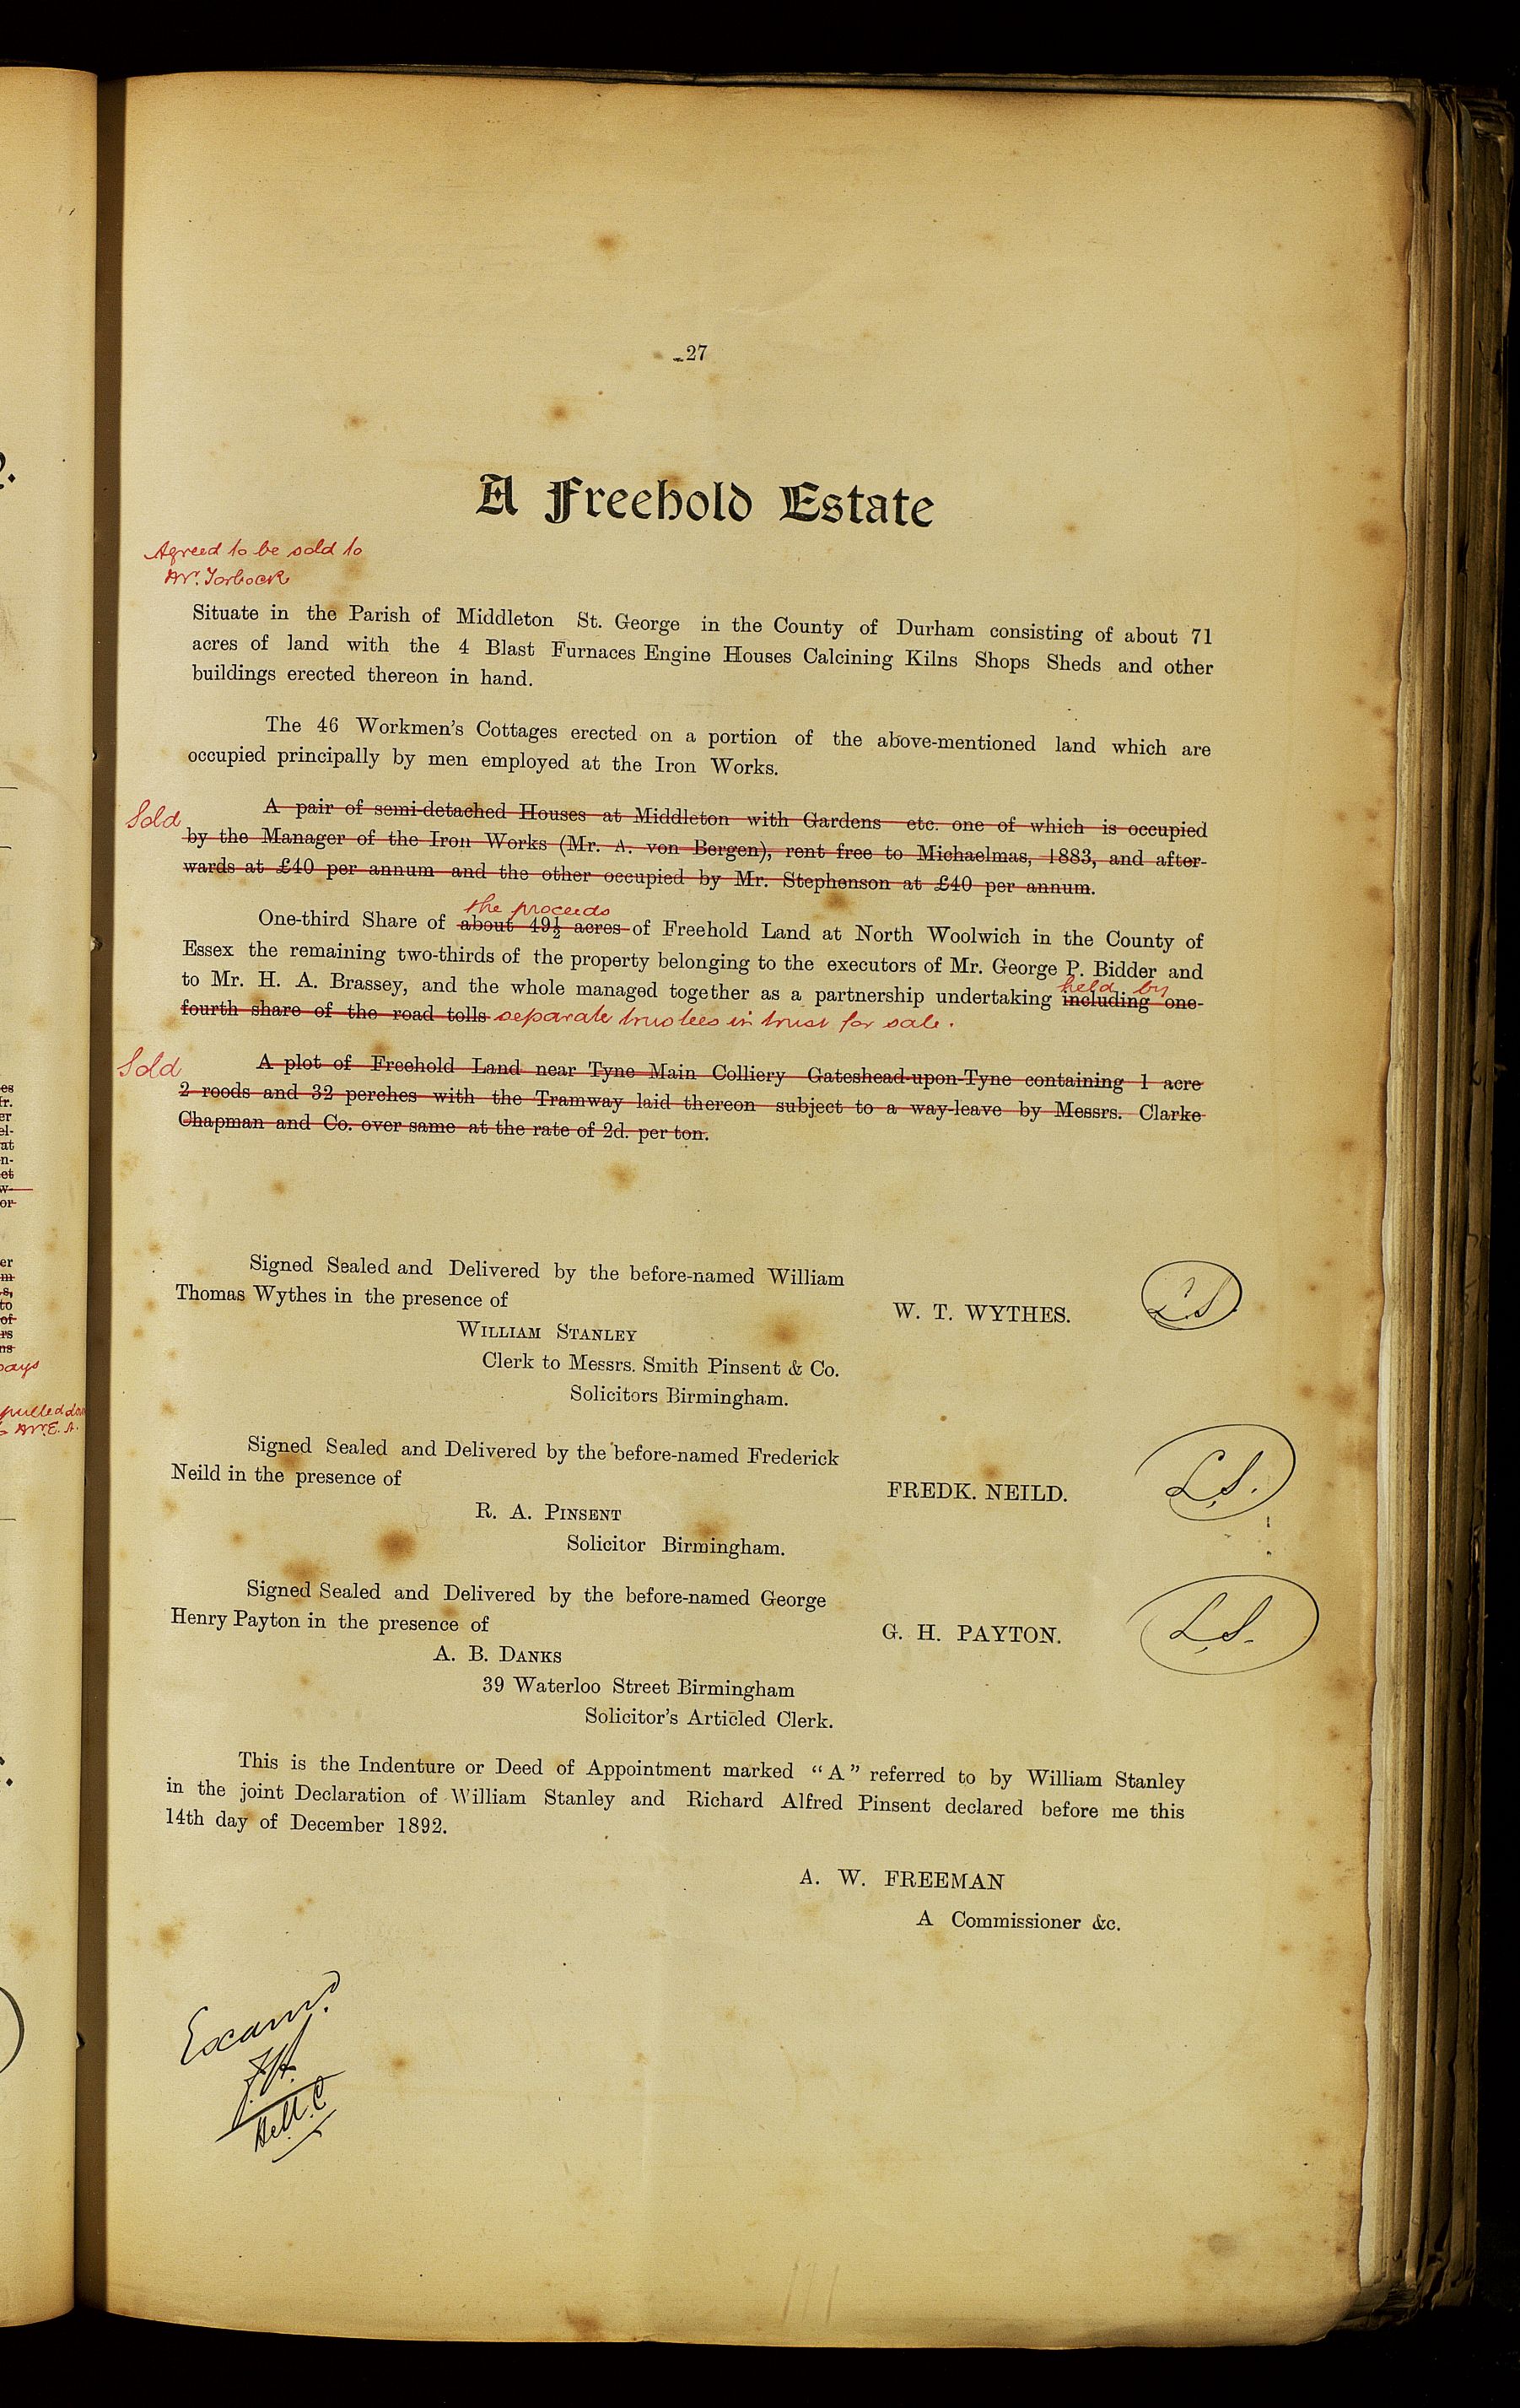 27
A Freehold Estate
Agreed to be sold to
Mr. Torbock
Situate in the Parish of Middleton St. George in the County of Durham consisting of about 71
acres of land with the 4 Blast Furnaces Engine Houses Calcining Kilns Shops Sheds and other
buildings erected thereon in hand.
The 46 Workmen's Cottages erected on a portion of the above-mentioned land which are
occupied principally by men employed at the Iron Works.
Sold
A pair of semi-detached Houses at Middleton with Gardens etc. one of which is occupied
by the Manager of the Iron Works (Mr. A. von Bergen), rent free to Michaelmas, 1883, and after-
wards at £40 per annum and the other occupied by Mr. Stephenson at £40 per annum.
the proceeds
One-third Share of about 49½ acres of Freehold Land at North Woolwich in the County of
Essex the remaining two-thirds of the property belonging to the executors of Mr. George P. Bidder and
held by
to Mr. H. A. Brassey, and the whole managed together as a partnership undertaking including one-
fourth share of the road tolls separate trustees in trust for sale.
Sold
A plot of Freehold Land near Tyne Main Colliery Gateshead-upon-Tyne containing 1 acre
2 roods and 32 perches with the Tramway laid thereon subject to a way-leave by Messrs. Clarke
Chapman and Co. over same at the rate of 2d. per ton.
Signed Sealed and Delivered by the before-named William
Thomas Wythes in the presence of
W. T. WYTHES.
L.S.
WILLIAM STANLEY
Clerk to Messrs. Smith Pinsent & Co.
Solicitors Birmingham.
Signed Sealed and Delivered by the before-named Frederick
Neild in the presence of
FREDK. NEILD.
L.S.
R. A. PINSENT
Solicitor Birmingham.
Signed Sealed and Delivered by the before-named George
Henry Payton in the presence of
G. H. PAYTON.
L.S.
A. B. DANKS
39 Waterloo Street Birmingham
Solicitor's Articled Clerk.
This is the Indenture or Deed of Appointment marked "A" referred to by William Stanley
in the joint Declaration of William Stanley and Richard Alfred Pinsent declared before me this
14th day of December 1892.
A. W. FREEMAN
A Commissioner &c.
Examd.